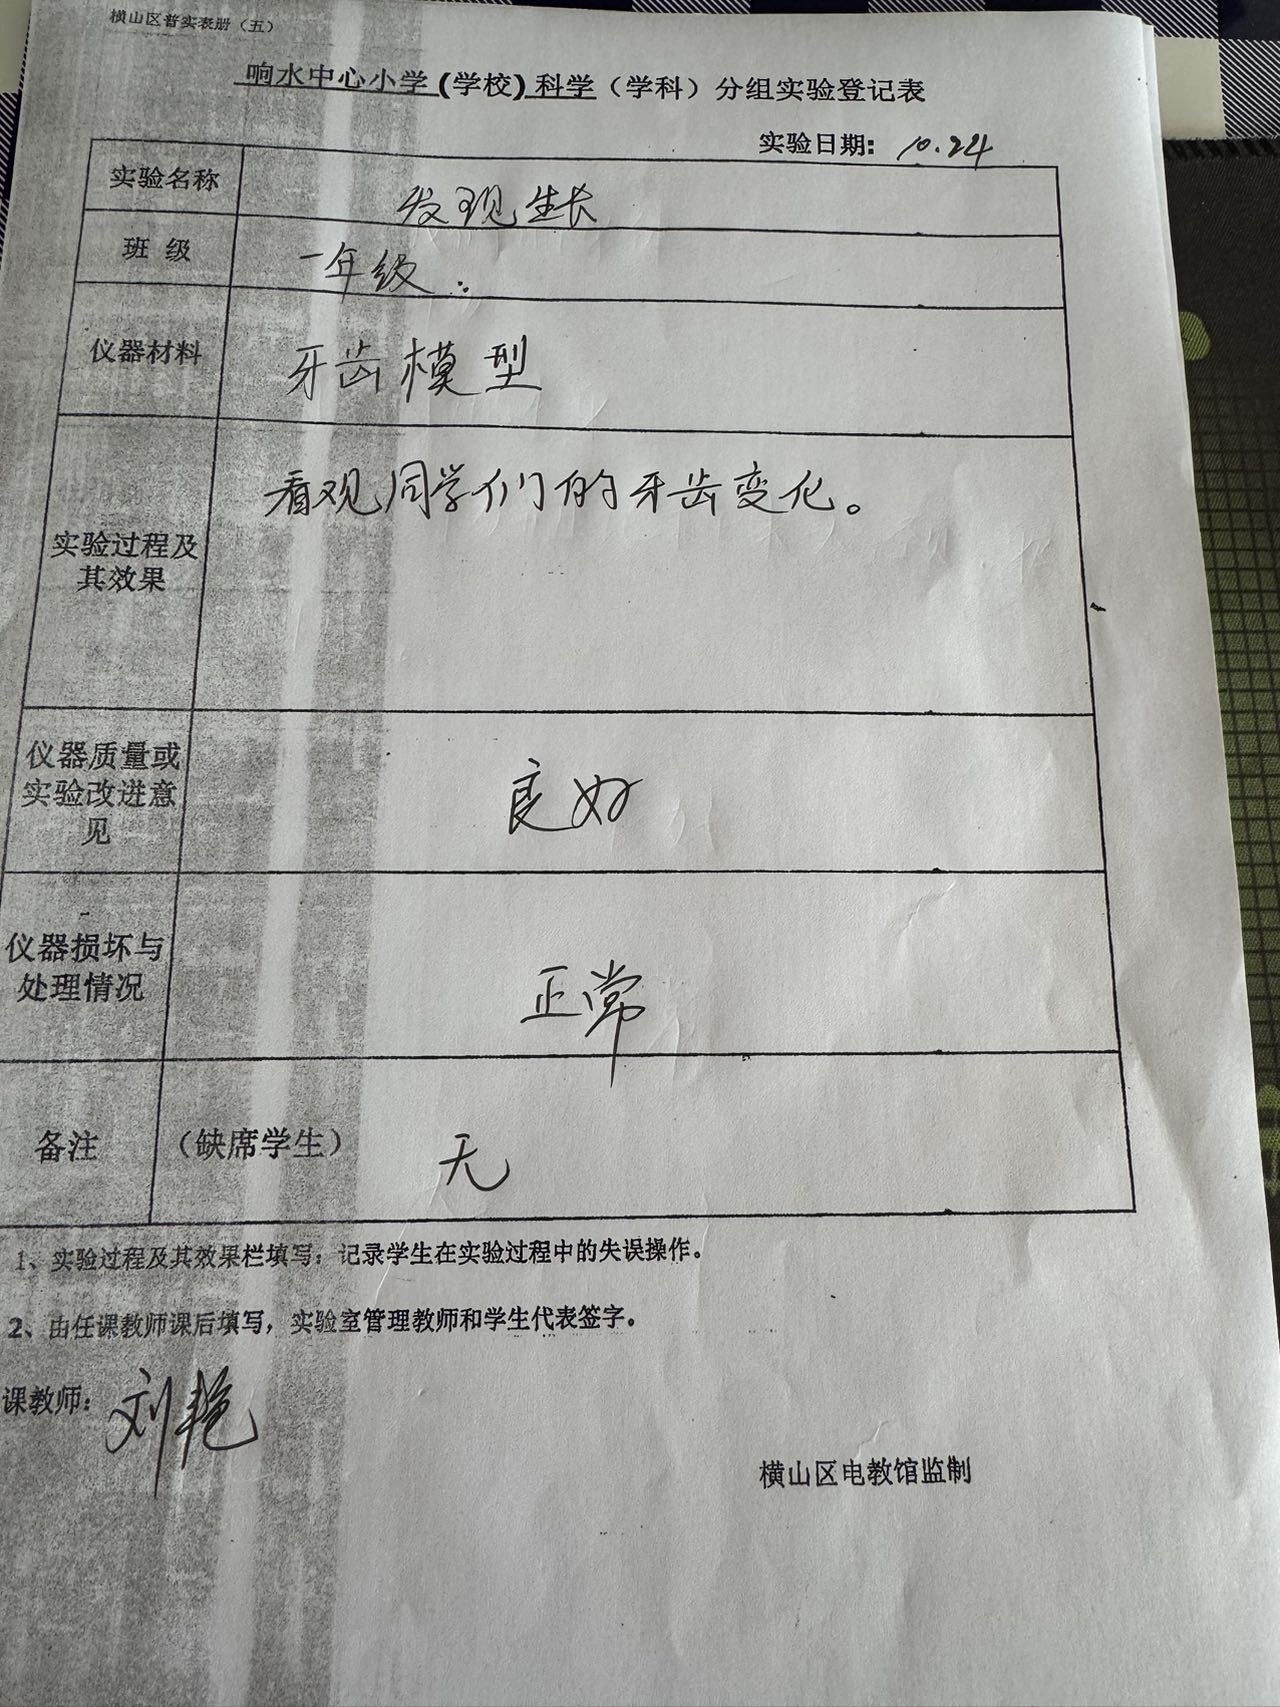 横山区普实表册（五）
响水中心小学(学校)科学（学科）分组实验登记表
实验日期：10.24
实验名称 发现生长
班 级 一年级：
仪器材料 牙齿模型
看观同学们的牙齿变化。
实验过程及
其效果
仪器质量或
实验改进意
见
良好
仪器损坏与
处理情况
正常
备注 （缺席学生） 无
1、实验过程及其效果栏填写：记录学生在实验过程中的失误操作。
2、由任课教师课后填写，实验室管理教师和学生代表签字。
课教师：刘艳
横山区电教馆监制